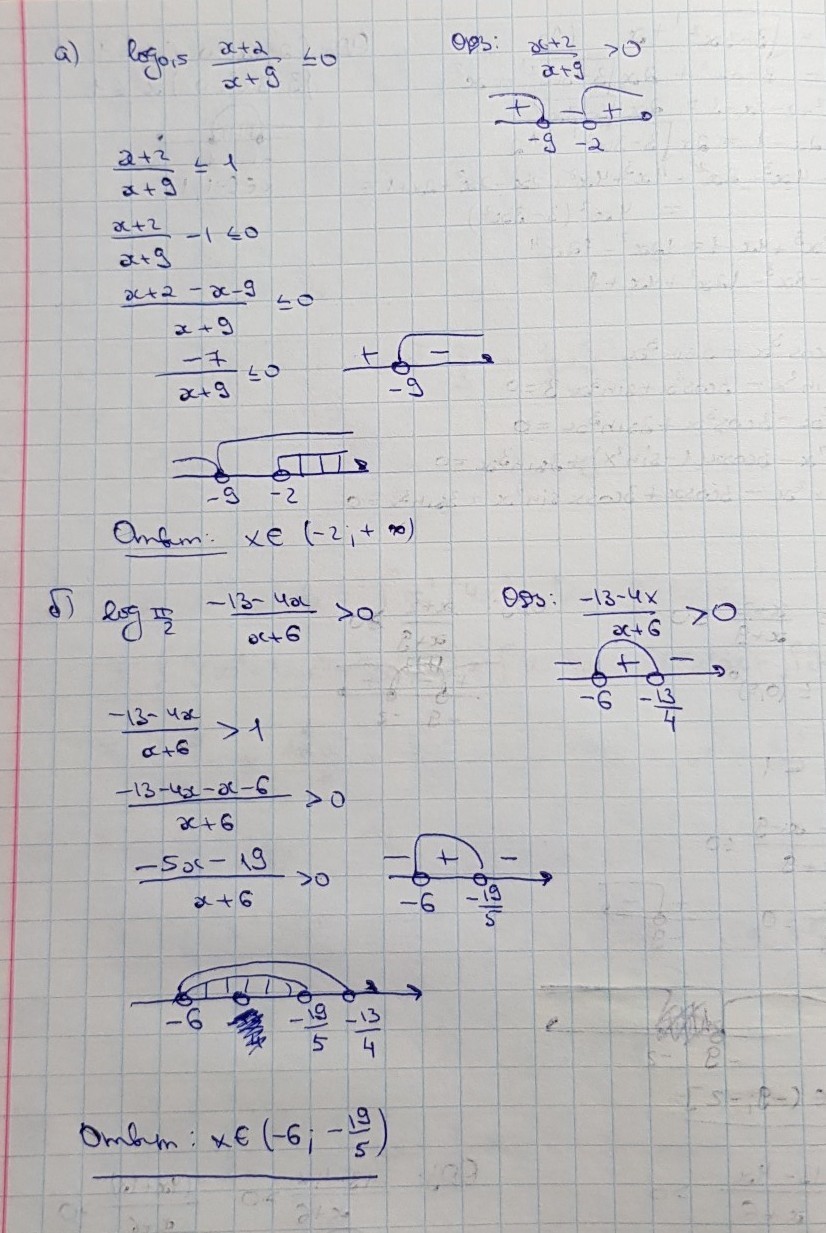 а) log₀,₅ (x+2)/(x+9) ≤ 0
Одз: (x+2)/(x+9) > 0
+ − +
-9 -2
(x+2)/(x+9) ≤ 1
(x+2)/(x+9) - 1 ≤ 0
(x+2-x-9)/(x+9) ≤ 0
-7/(x+9) ≤ 0
+ −
-9
-9 -2
Ответ: x∈ (-2; +∞)
б) log π/2 (-13-4x)/(x+6) > 0
Одз: (-13-4x)/(x+6) > 0
− + −
-6 -13/4
(-13-4x)/(x+6) > 1
(-13-4x-x-6)/(x+6) > 0
(-5x-19)/(x+6) > 0
− + −
-6 -19/5
-6 -19/5 -13/4
Ответ: x∈ (-6; -19/5)